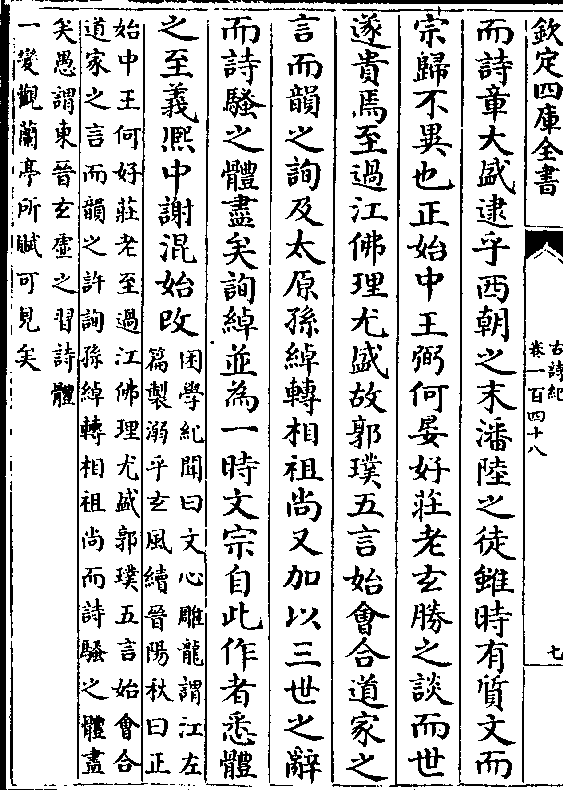 欽定四庫全書
古詩紀
卷一百四十八
七
而詩章大盛逮乎西朝之末潘陸之徒雖時有質文而
宗歸不異也正始中王弼何晏好莊老玄勝之談而世
遂貴焉至過江佛理尤盛故郭璞五言始會合道家之
言而韻之詢及太原孫綽轉相祖尚又加以三世之辭
而詩騷之體盡矣詢綽並為一時文宗自此作者悉體
之至義熙中謝混始改
困學紀聞曰文心雕龍謂江左
篇製溺乎玄風續晉陽秋曰正
始中王何好莊老至過江佛理尤盛郭璞五言始會合
道家之言而韻之許詢孫綽轉相祖尚而詩騷之體盡
矣愚謂東晉玄虛之習詩體
一變觀蘭亭所賦可見矣